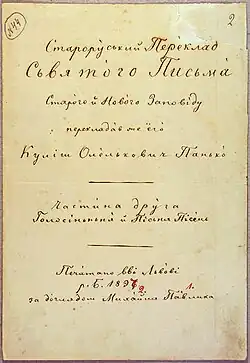 №44
2
Староруський Переклад
Сьвятого Письма
Старого й Нового Заповіду
перекладав же його
Куліш Олелькович Панько
Частина друга
Голосіннєй й Пісня Пісень
Печатано вві Львові
р. Б. 1897
2. 1.
за доглядом Михайла Павлика